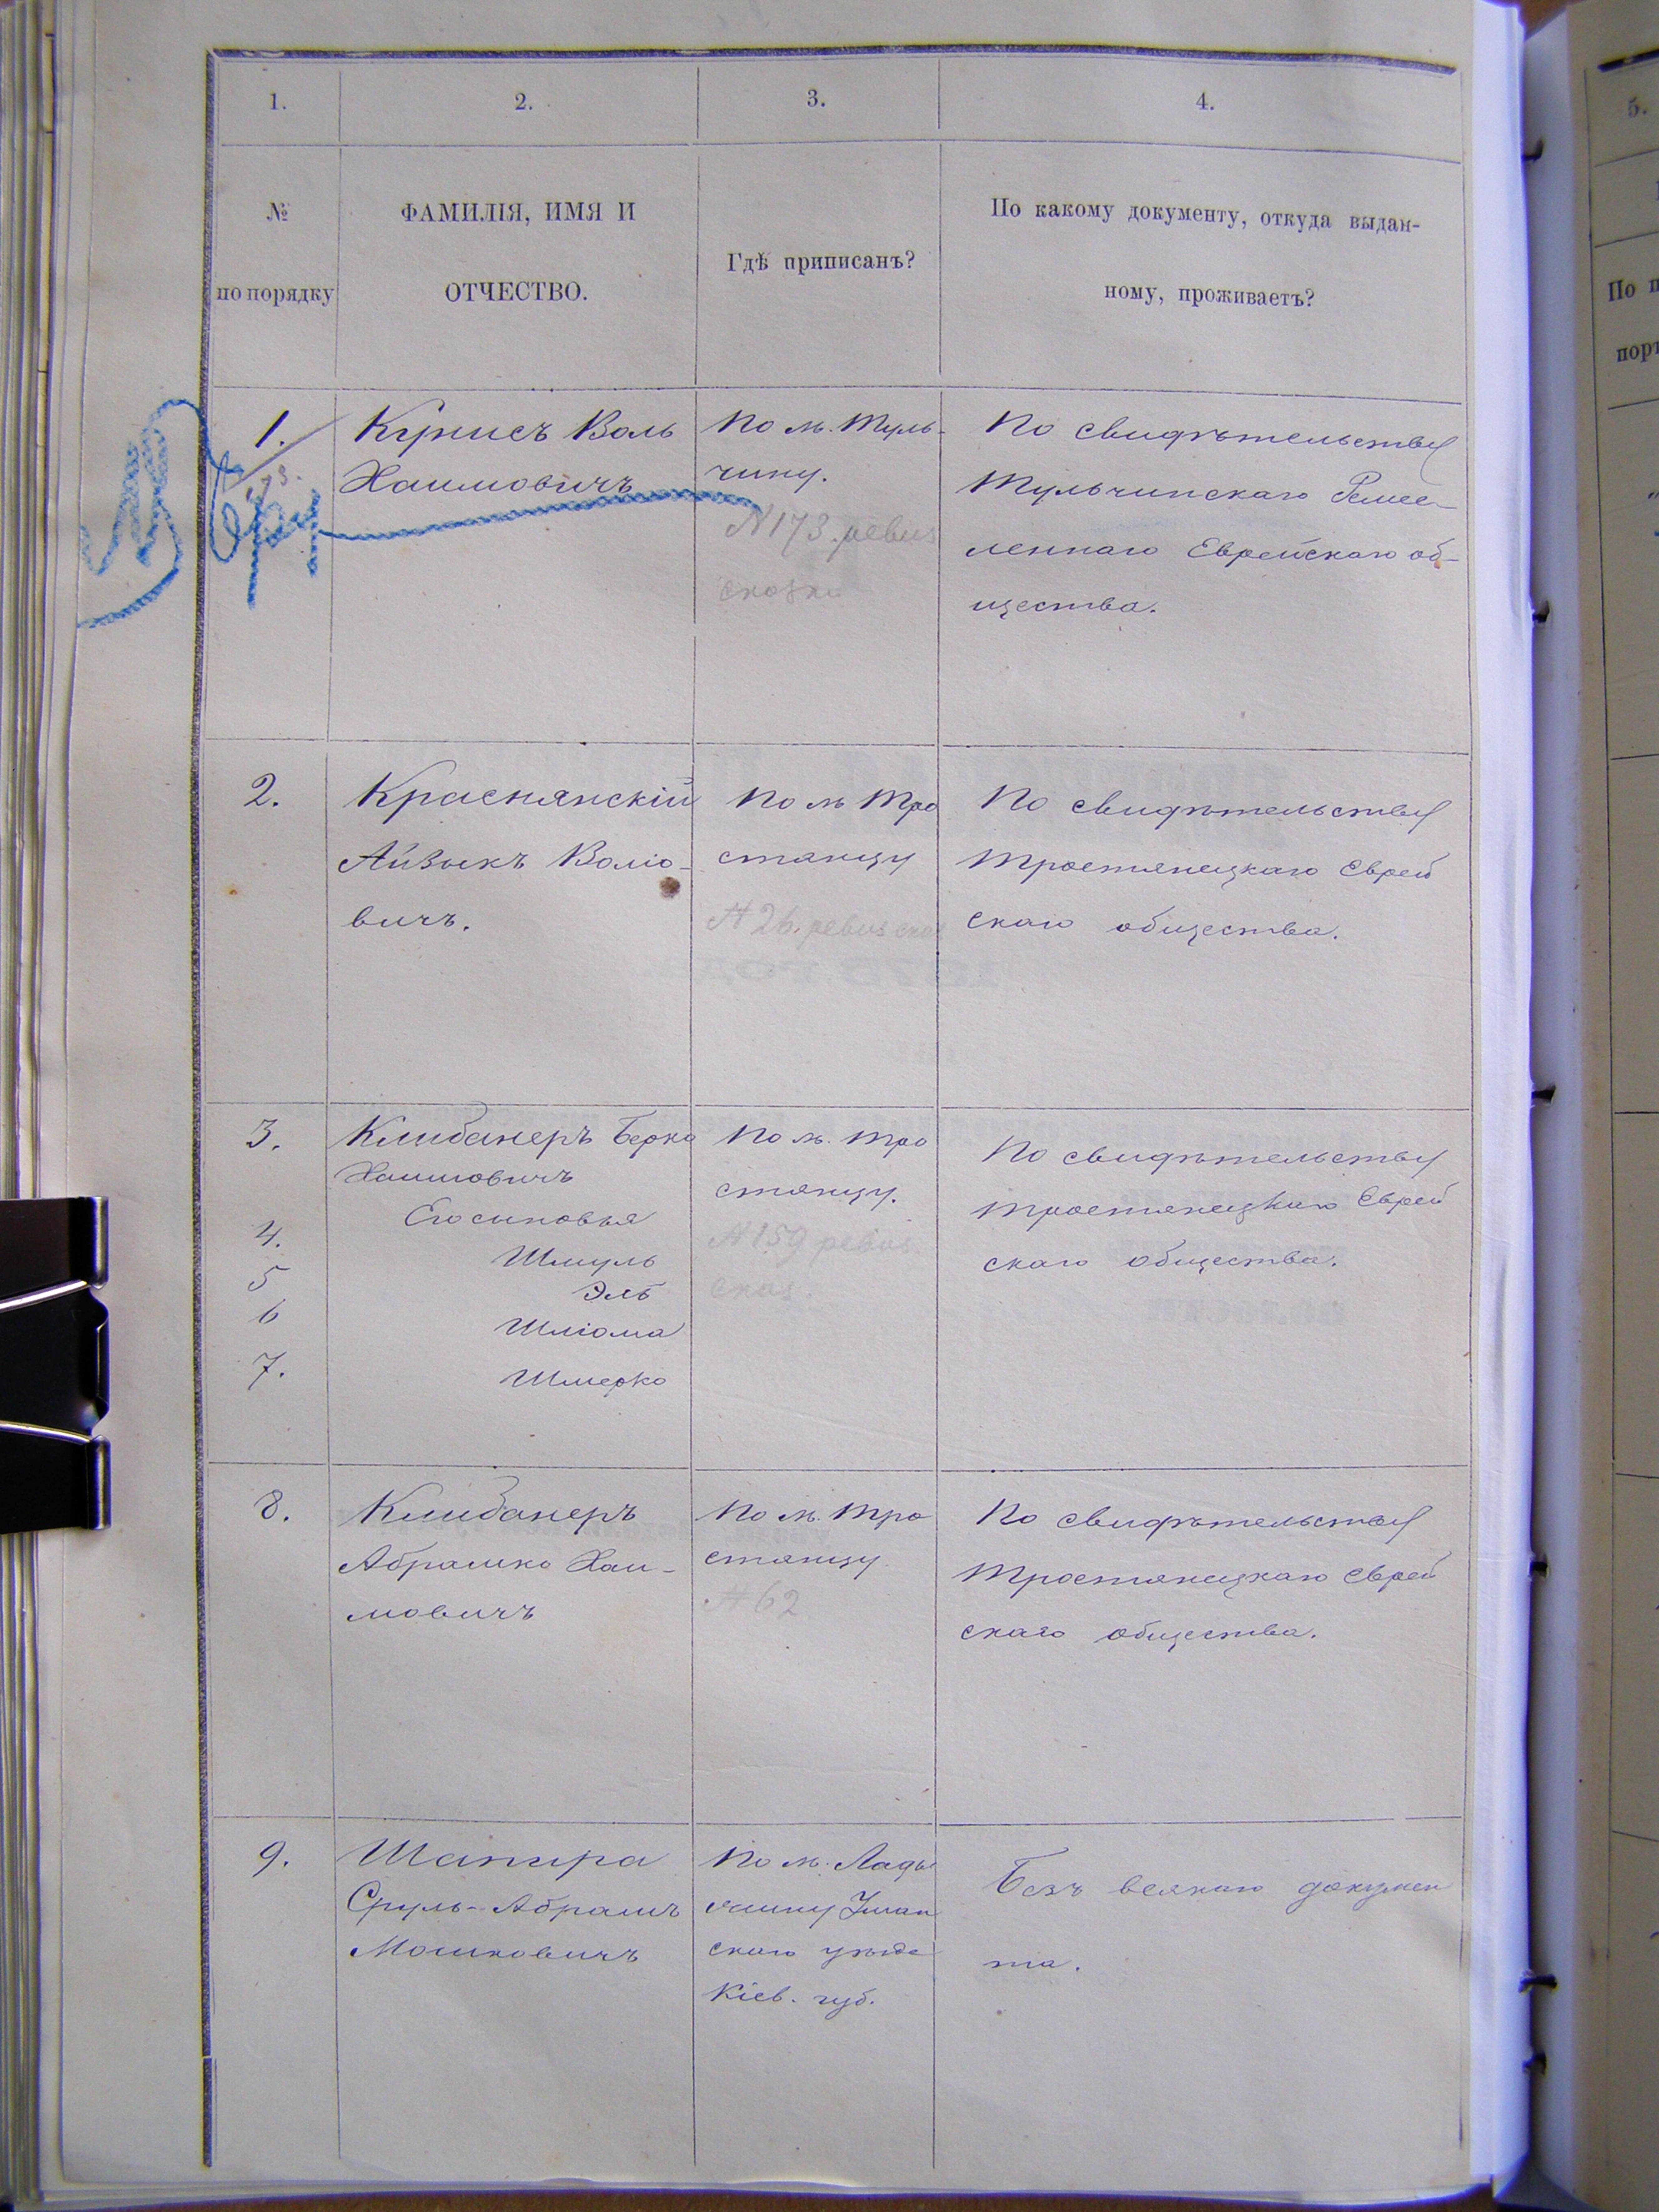 1.
2.
3.
4.
№
по порядку
ФАМИЛІЯ, ИМЯ И
ОТЧЕСТВО.
Гдѣ приписанъ?
По какому документу, откуда выдан-
ному, проживаетъ?
1.
173.
Кунисъ Воль
Хаимовичъ
По м. Туль-
чину.
N 173. ревиз
сказки
По свидѣтельству
Тульчинскаго Ремес-
леннаго Еврейскаго об-
щества.
2.
Краснянскій
Айзыкъ Воліо-
вичъ.
По м Тро
стянцу
№ 26. ревиз сказ
По свидѣтельству
Тростянецкаго Еврей
скаго общества.
3.
Клибанеръ Берко
Хаимовичъ
Его сыновья
4.
Шмуль
5
Эль
6
Шліома
7.
Шмерко
По м. Тро
стянцу.
№ 159 ревиз.
сказ.
По свидѣтельству
Тростянецкаго Еврей
скаго общества.
8.
Клибанеръ
Абрамко Хаи-
мовичъ
По м. Тро
стянцу
№ 62
По свидѣтельству
Тростянецкаго Еврей
скаго общества.
9.
Шапира
Сруль-Абрамъ
Мошковичъ
По м. Лады
жину Уман
скаго уѣзда
Кіев. губ.
Безъ всякаго докумен
та.
5.
По п
порт